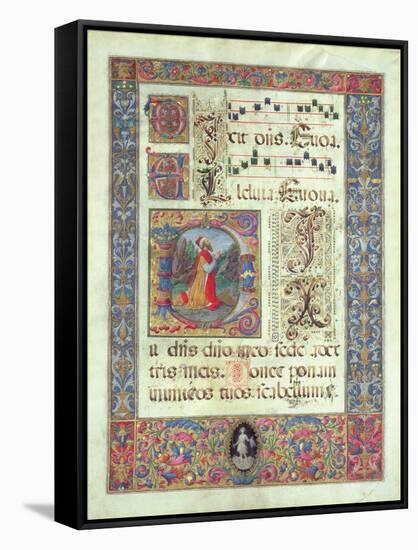 Ixit dñs. Euoua.
Lleluia. Euoua.
D I X
it dñs dño meo sede a dex
tris meis. Donec ponam
inimicos tuos scabellum